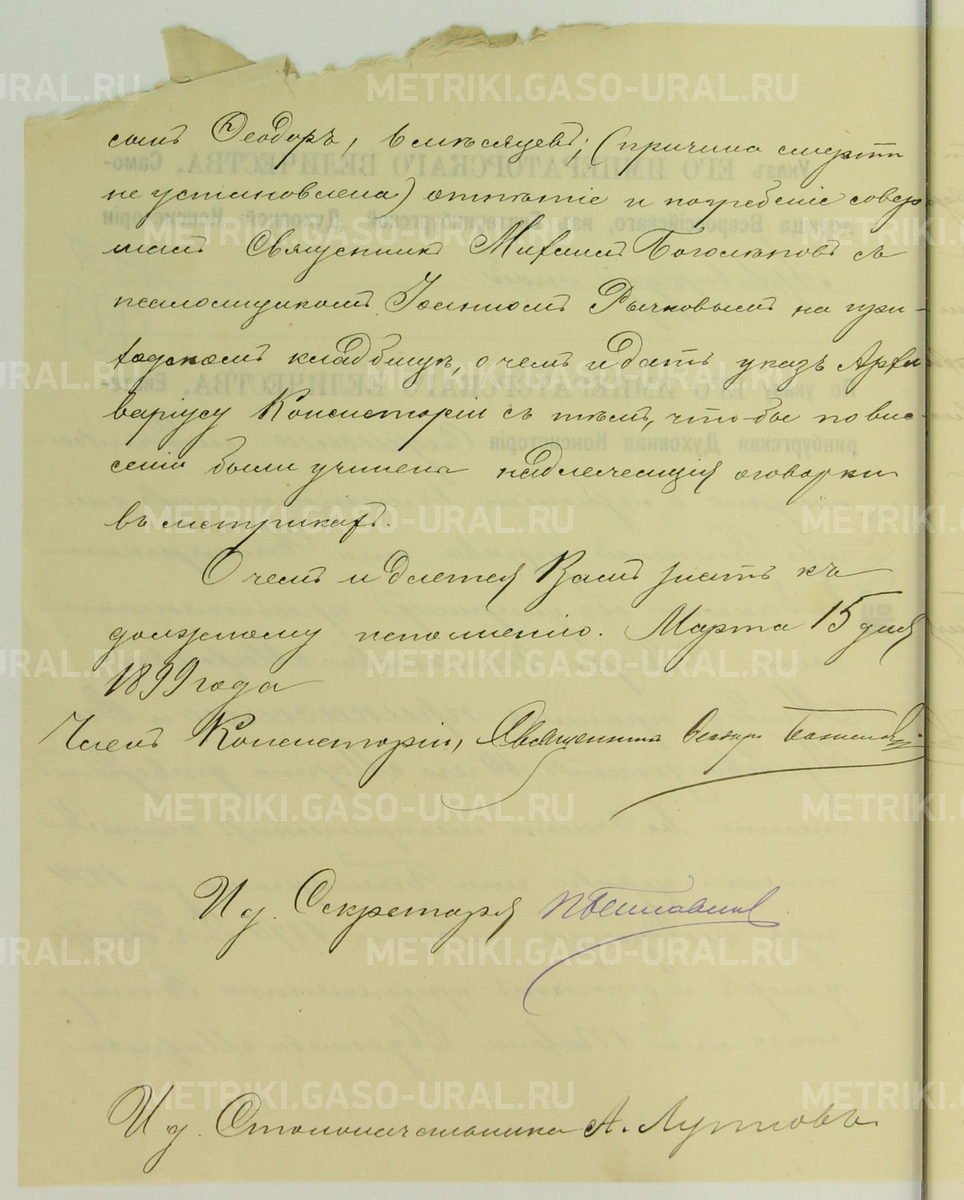 METRIKI.GASO-URAL.RU
сынъ Ѳеодоръ, 8 мѣсяцевъ; (причина смерти
не установлена) отпѣтіе и погребеніе совер
шалъ Священникъ Михаилъ съ
псаломщикомъ Іоанномъ Рычковымъ на при-
ходскомъ кладбищѣ, о чемъ и дать указъ Архи
варіусу Консисторіи съ тѣмъ, чтобы по вне-
сеніи были учинены надлежащія оговорки
въ метрикахъ.
О чемъ и дается Вамъ знать къ
должному исполненію. Марта 15 дня
1899 года
Членъ Консисторіи, Священникъ
И д. Секретаря
И д. Столоначальника А. Лутковъ